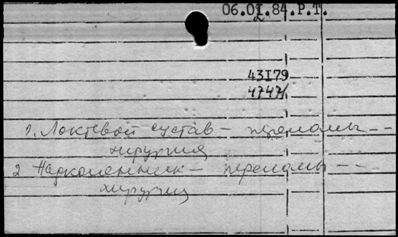 06.02.84.Р.Т.
43179
47471
1. Локтевой сустав – переломы – –
хирургия
2 Надколенник – переломы – – –
хирургия